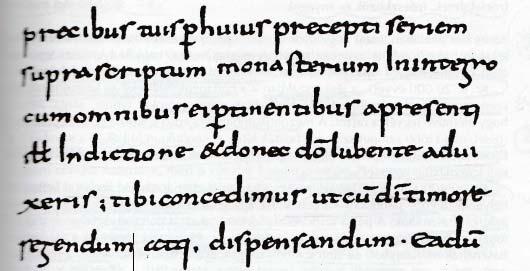 precibus tuis p̱ huius precepti seriem
suprascriptum monasterium In integro
cum omnibus ei p̱tinentibus a presenti
Indictione & donec dō Iubente adui
xeris ; tibi concedimus ut cū dī timore
regendum dispensandum · Eadū